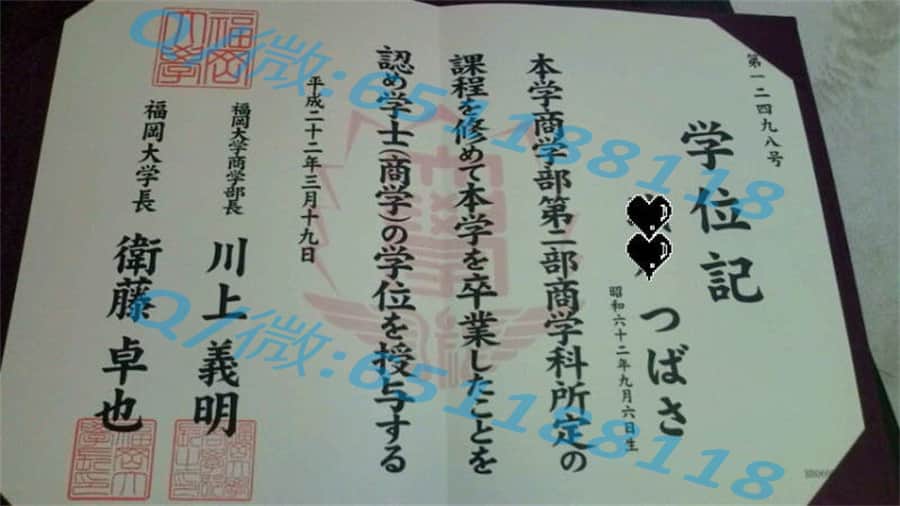 第一二四九八号
学位記
つばさ
昭和六十二年九月六日生
本学商学部第二部商学科所定の
課程を修めて本学を卒業したことを
認め学士(商学)の学位を授与する
平成二十二年三月十九日
福岡大学商学部長 川上義明
福岡大学長 衛藤卓也
福岡大学
Q/微:651188118
Q/微:651188118